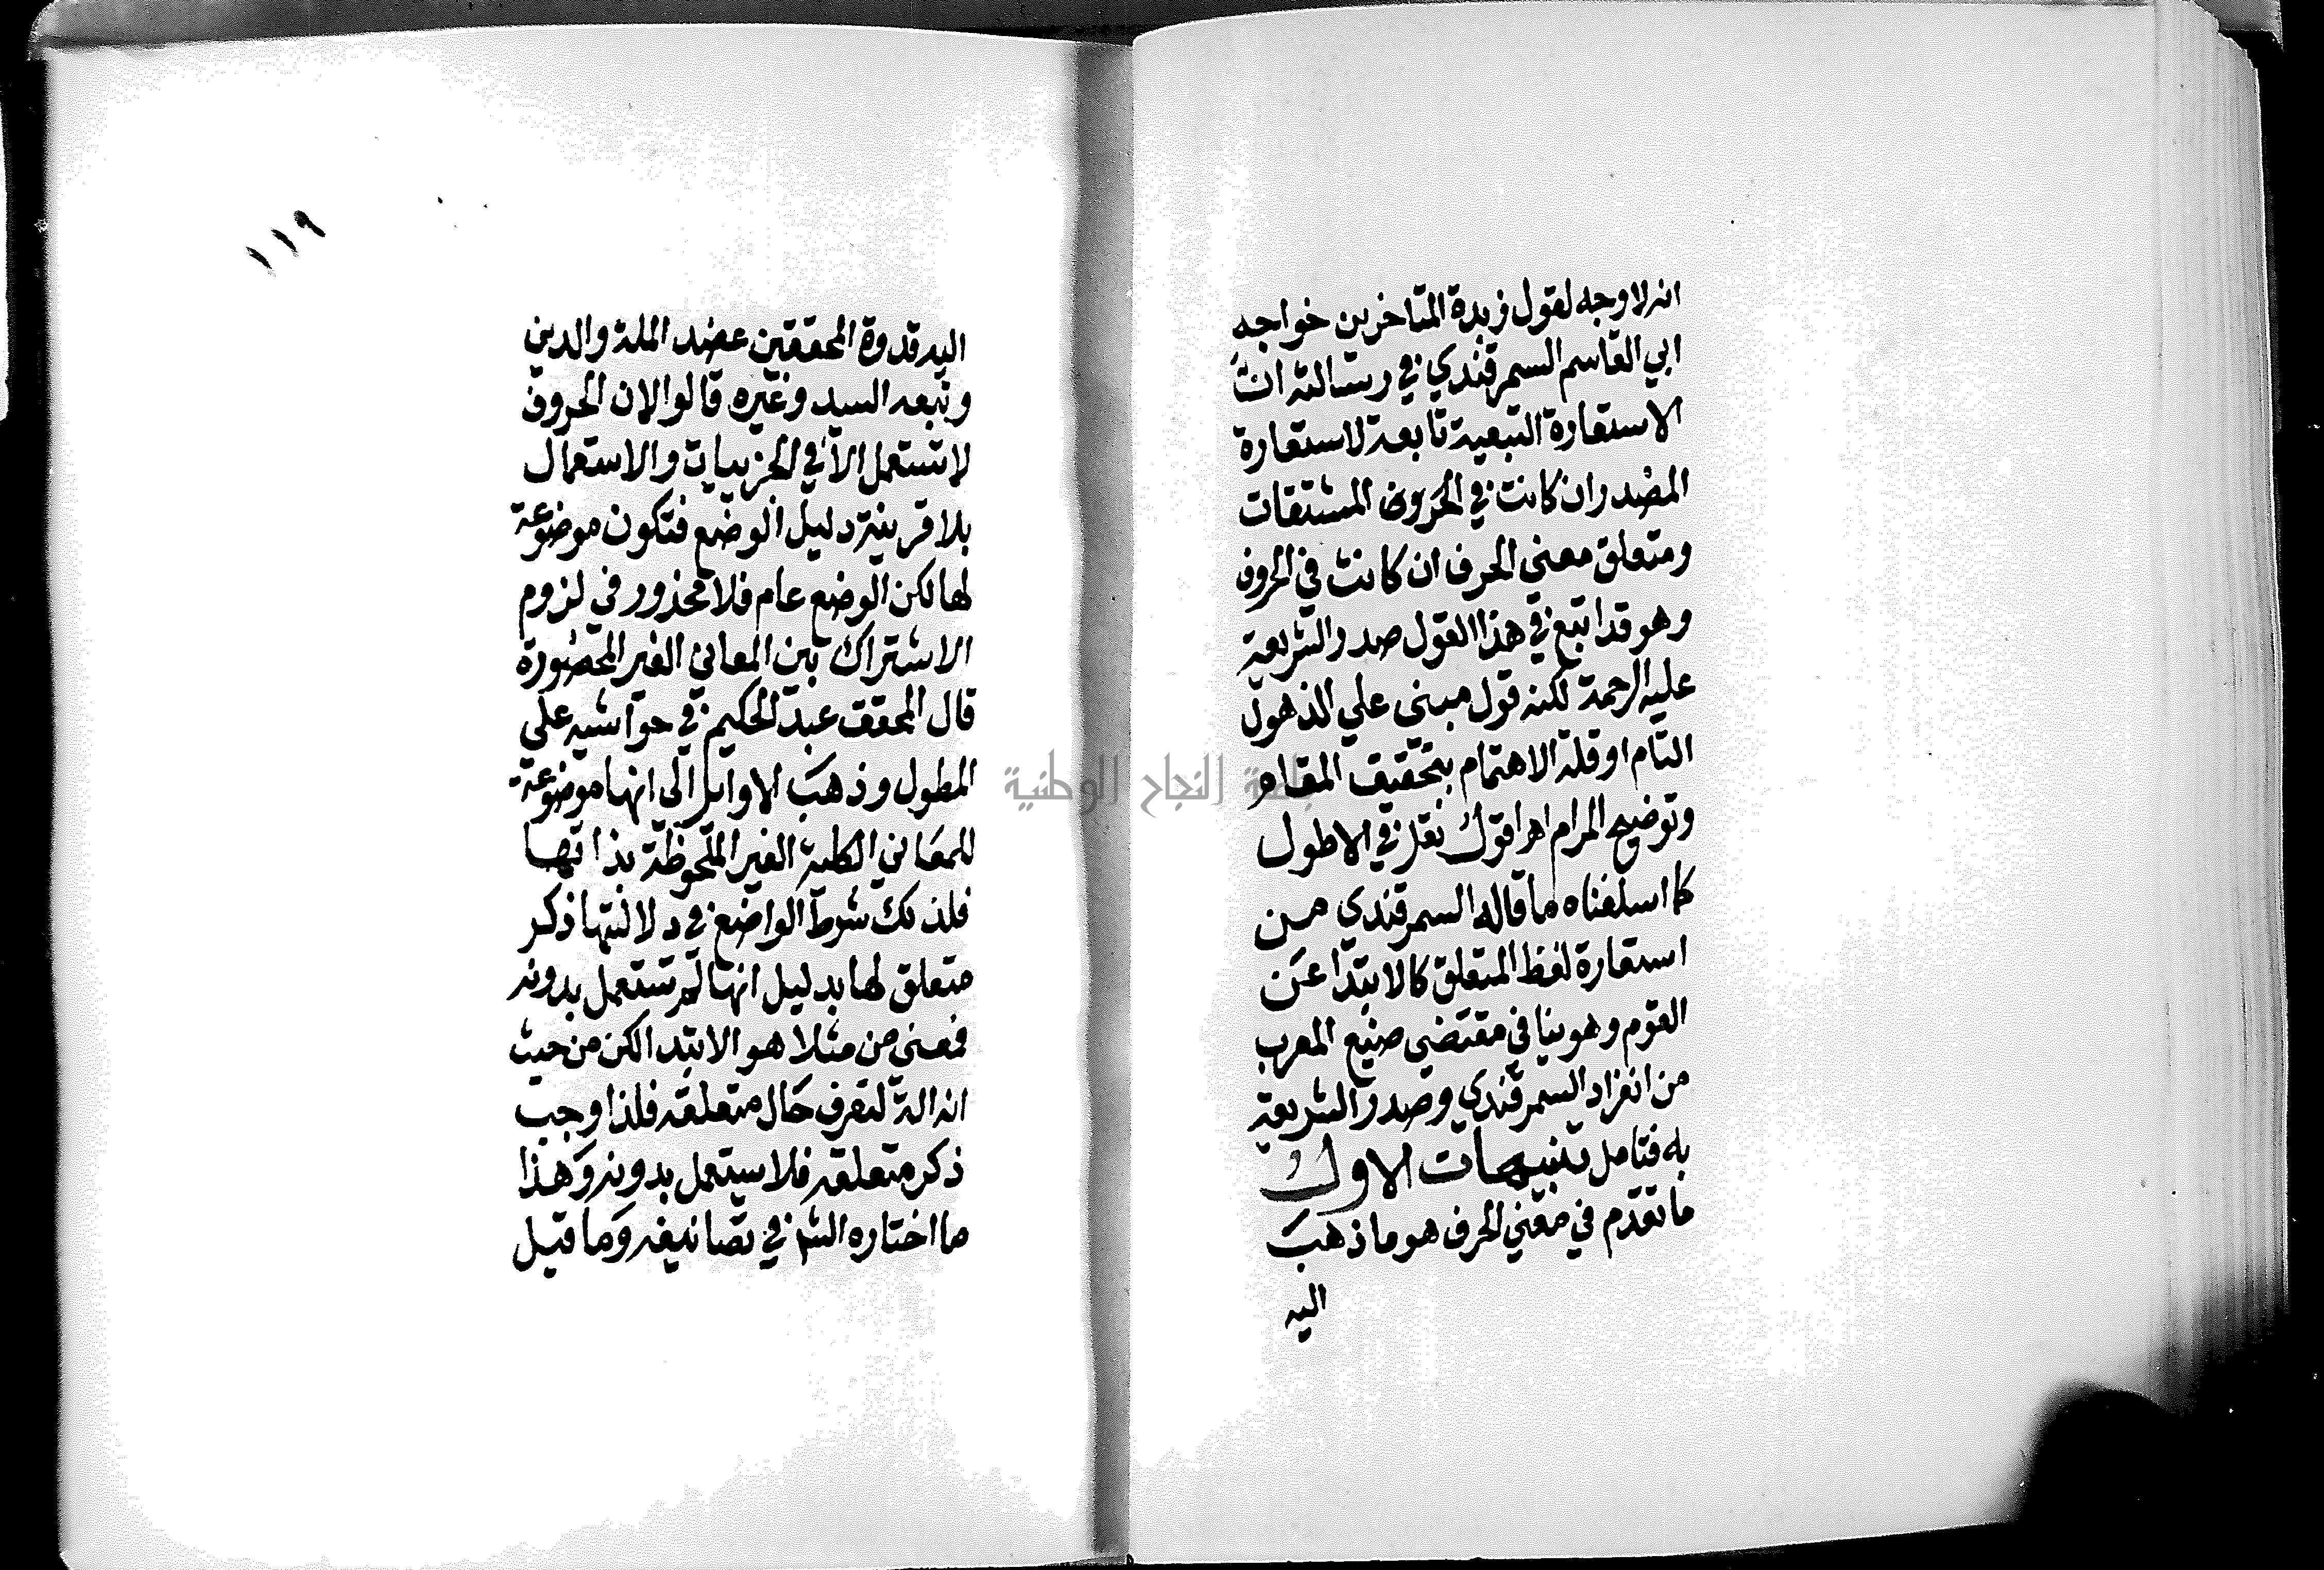 انه لا وجه لقول زبدة المتاخرين خواجه
ابي القاسم السمرقندي في رسالته ان
الاستعارة التبعية تابعة لاستعارة
المصدر ان كانت في الحروف المشتقات
ومتعلق معني الحرف ان كانت في الحروف
وهو قد اتبع في هذا القول صدر الشريعة
عليه الرحمة لكنه قول مبني علي الذهول
التام او قلة الاهتمام بتحقيق المقام
وتوضيح المرام اهـ اقول نقل في الاطول
كما اسلفناه ما قاله السمرقندي من
استعارة لفظ المتعلق كالابتدا عن
القوم وهو ينافي مقتضي صنيع المعرب
من انفراد السمرقندي وصدر الشريعة
به فتامل تنبيهات الاول
ما تقدم في معني الحرف هو ما ذهب
اليه
١١٩
اليه قدوة المحققين عضد الملة والدين
وتبعه السيد وغيره قالوا لان الحروف
لا تستعمل الا في الجزييات والاستعمال
بلا قرينة دليل الوضع فتكون موضوعة
لها لكن الوضع عام فلا محذور في لزوم
الاشتراك بين المعاني الغير المحصورة
قال المحقق عبد الحكيم في حواشيه علي
المطول وذهب الاوايل الي انها موضوعة
للمعاني الكلية الغير الملحوظة بذاتها
فلذلك شرط الواضع في دلالتها ذكر
متعلق لها بدليل انها لم تستعمل بدونه
فمعني من مثلا هو الابتدا لكن من حيث
انه الة لتعرف حال متعلقه فلذا وجب
ذكر متعلقه فلا يستعمل بدونه وهذا
ما اختاره الش في تصانيفه وما قيل
النجاح الوطنية